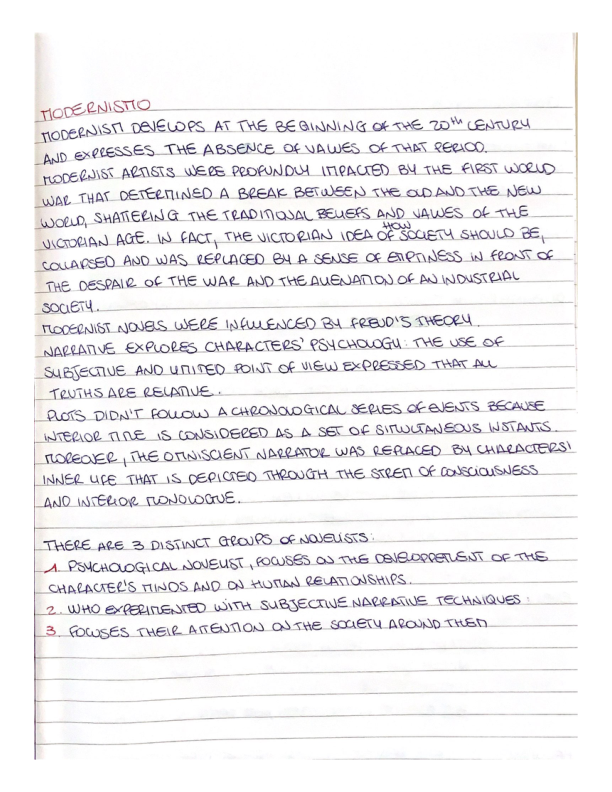 MODERNISMO
MODERNISM DEVELOPS AT THE BEGINNING OF THE 20th CENTURY
AND EXPRESSES THE ABSENCE OF VALUES OF THAT PERIOD.
MODERNIST ARTISTS WERE PROFUNDLY IMPACTED BY THE FIRST WORLD
WAR THAT DETERMINED A BREAK BETWEEN THE OLD AND THE NEW
WORLD, SHATTERING THE TRADITIONAL BELIEFS AND VALUES OF THE
VICTORIAN AGE. IN FACT, THE VICTORIAN IDEA OF HOW SOCIETY SHOULD BE,
COLLAPSED AND WAS REPLACED BY A SENSE OF EMPTINESS IN FRONT OF
THE DESPAIR OF THE WAR AND THE ALIENATION OF AN INDUSTRIAL
SOCIETY.
MODERNIST NOVELS WERE INFLUENCED BY FREUD'S THEORY.
NARRATIVE EXPLORES CHARACTERS' PSYCHOLOGY: THE USE OF
SUBJECTIVE AND LIMITED POINT OF VIEW EXPRESSED THAT ALL
TRUTHS ARE RELATIVE.
PLOTS DIDN'T FOLLOW A CHRONOLOGICAL SERIES OF EVENTS BECAUSE
INTERIOR TIME IS CONSIDERED AS A SET OF SIMULTANEOUS INSTANTS.
MOREOVER, THE OMNISCIENT NARRATOR WAS REPLACED BY CHARACTERS'
INNER LIFE THAT IS DEPICTED THROUGH THE STREM OF CONSCIOUSNESS
AND INTERIOR MONOLOGUE.
THERE ARE 3 DISTINCT GROUPS OF NOVELISTS:
1. PSYCHOLOGICAL NOVELIST, FOCUSES ON THE DEVELOPPEMENT OF THE
CHARACTER'S MINDS AND ON HUMAN RELATIONSHIPS.
2. WHO EXPERIMENTED WITH SUBJECTIVE NARRATIVE TECHNIQUES:
3. FOCUSES THEIR ATTENTION ON THE SOCIETY AROUND THEM